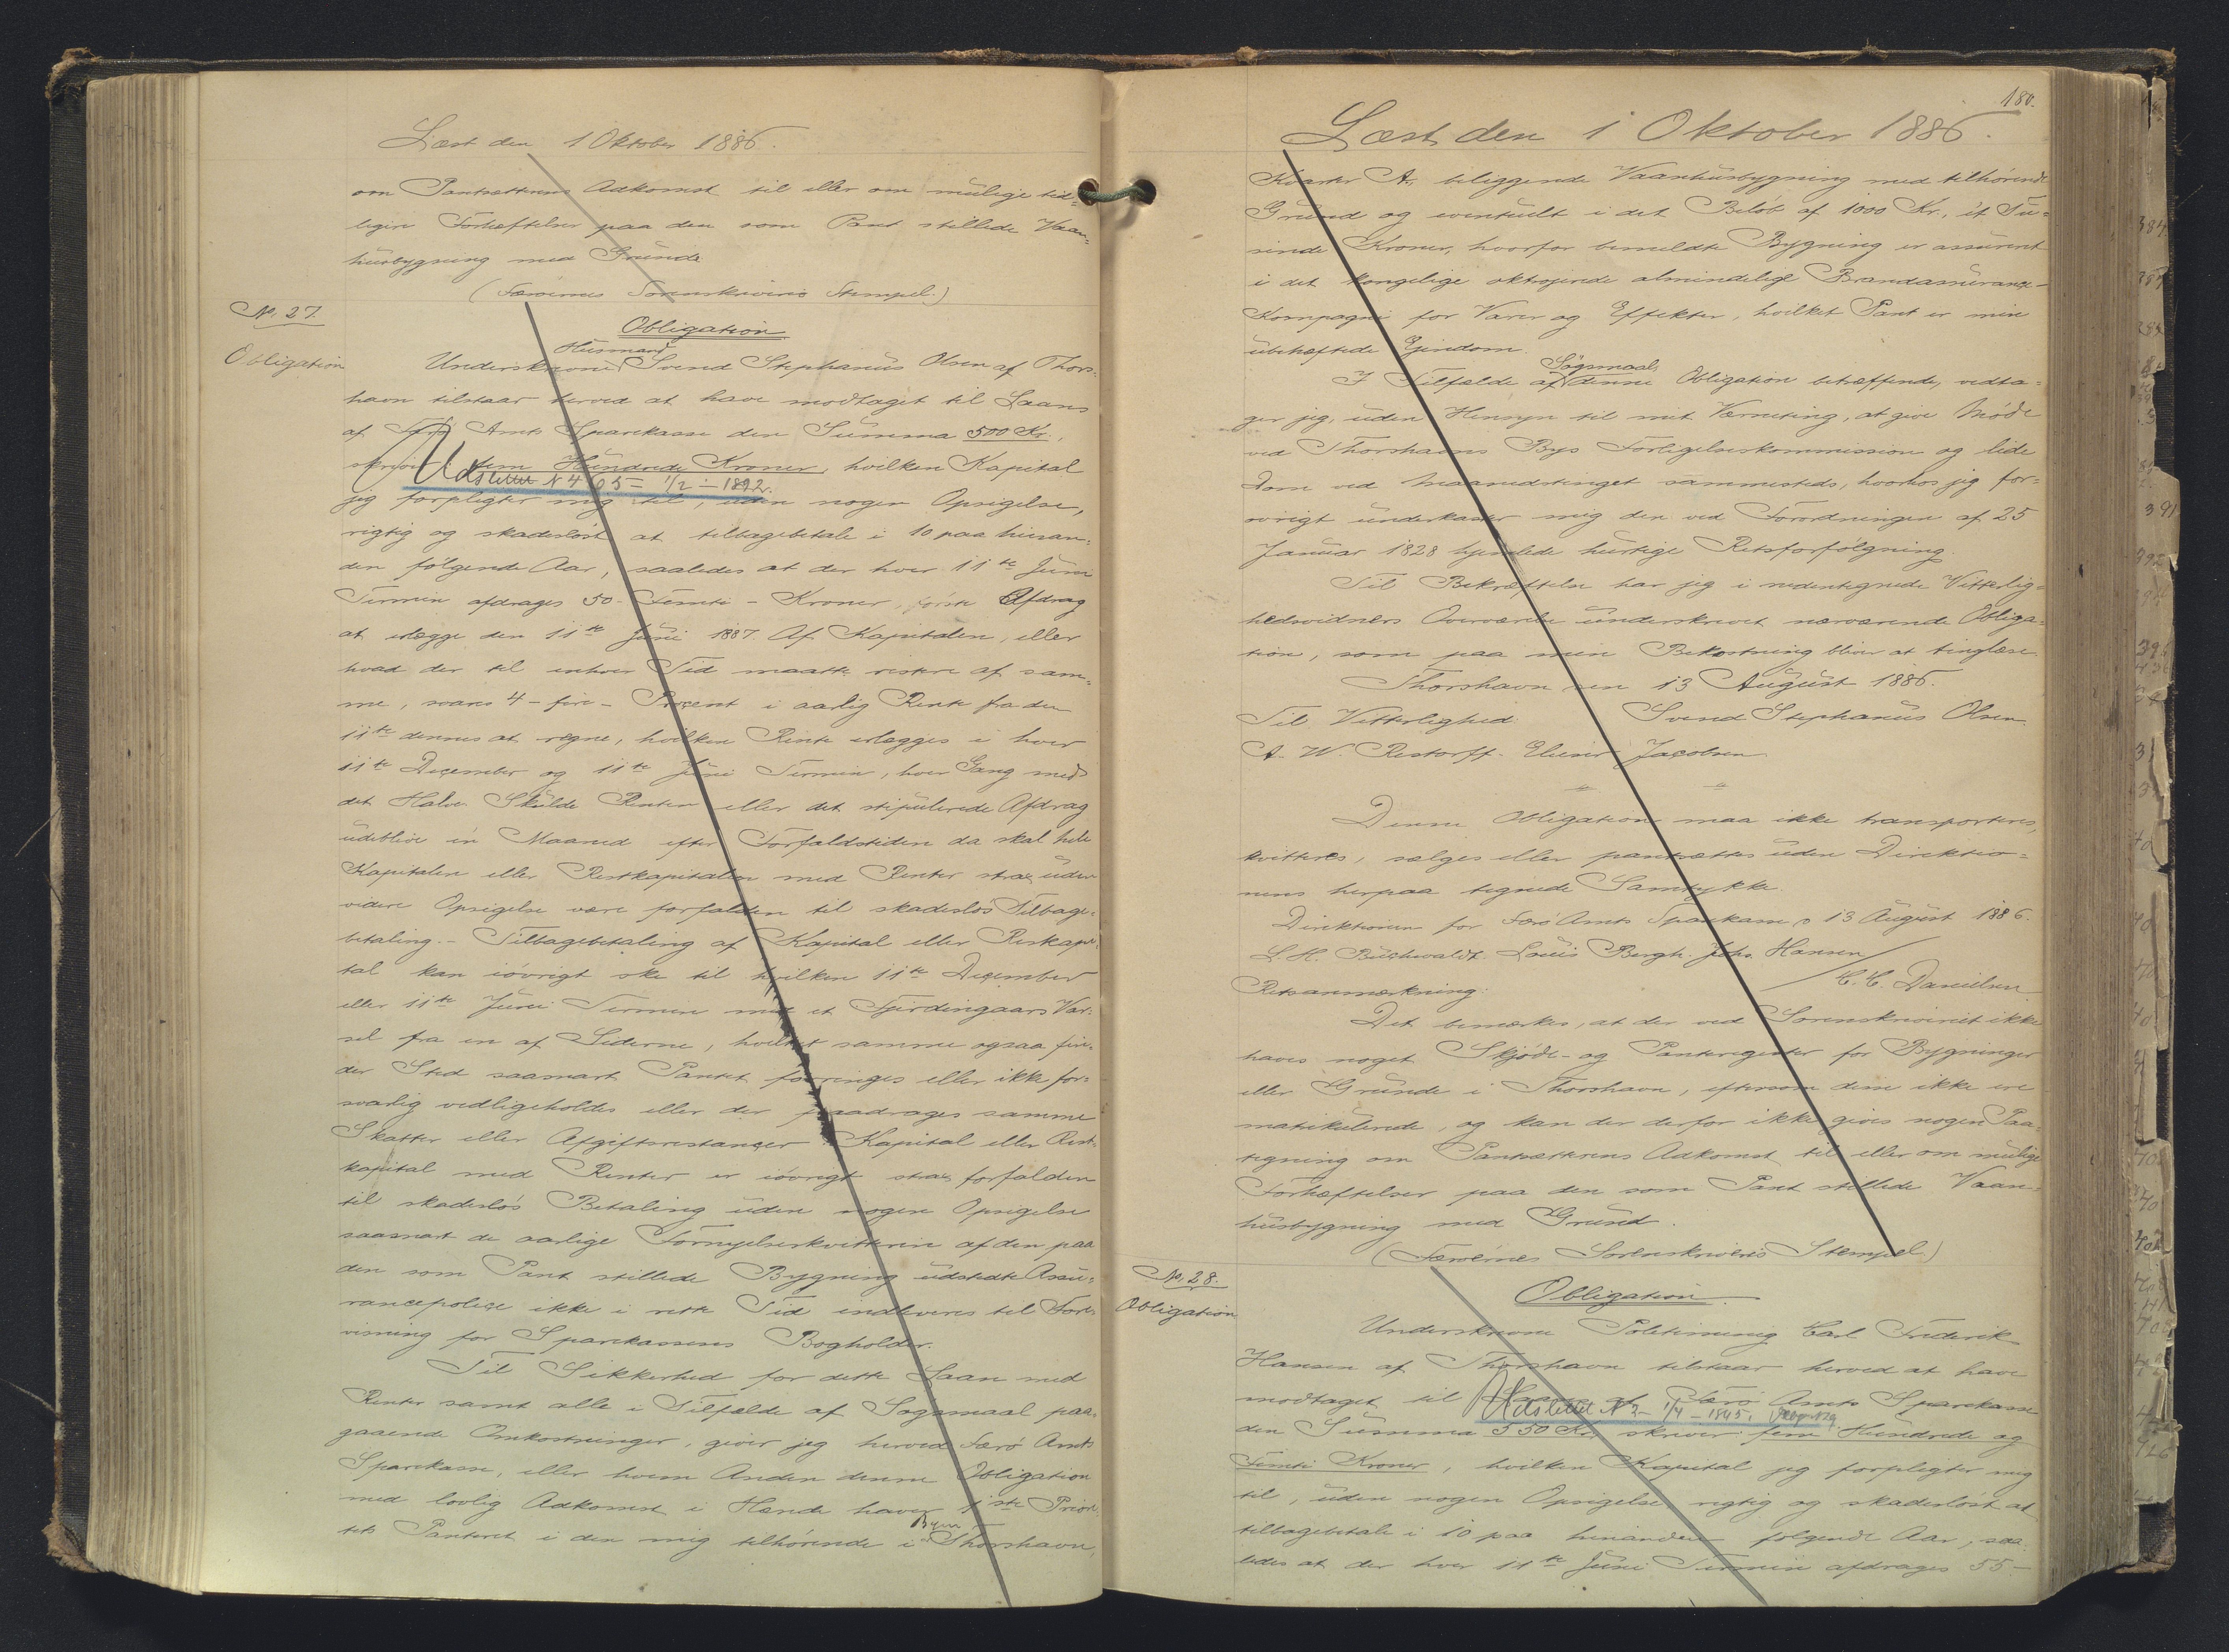 Læst den 1 Oktober 1886.
om Pantsætterens Adkomst til eller om mulige tid=
ligere Forhæftelser paa den som Pant stillede Vaan=
husbygning med Grunde
(Færøernes Sorenskriveris Stempel.)
No. 27.
Obligation
Obligation
Husmand
Underskrevne Svend Stephanus Olsen af Thors=
havn tilstaar herved at have modtaget til Laans
af Færø Amts Sparekasse den Summa 500 Kr.,
skriver fem Hundrede Kroner, hvilken Kapital
Udslettet N 465 - 1/2 - 1892.
jeg forpligter mig til, uden nogen Opsigelse,
rigtig og skadesløst at tilbagebetale i 10 paa hinan=
den følgende Aar, saaledes at der hver 11te Juni
Termin afdrages 50 - Femti - Kroner, første Afdrag
at erlægge den 11te Juni 1887. Af Kapitalen, eller
hvad der til enhver Tid maatte restere af sam=
me, svares 4 - fire - Procent i aarlig Rente fra den
11te dennes at regne, hvilken Rente erlægges i hver
11te December og 11te Juni Termin, hver Gang med
det Halve. Skulde Renten eller det stipulerede Afdrag
udeblive én Maaned efter Forfaldstiden da skal hele
Kapitalen eller Restkapitalen med Renter strax uden
videre Opsigelse være forfalden til skadesløs Tilbage=
betaling. - Tilbagebetaling af Kapital eller Restkapi=
tal kan iøvrigt ske til hvilken 11te December
eller 11te Juni Termin med et Fjerdingaars Var=
sel fra en af Siderne, hvilket samme ogsaa fin=
der Sted saasnart Pantet forringes eller ikke for=
svarlig vedligeholdes eller der paadrages samme
Skatter eller Afgiftsrestancer. Kapital eller Rest=
kapital med Renter er iøvrigt strax forfalden
til skadesløs Betaling uden nogen Opsigelse
saasnart de aarlige Fornyelseskvitterin af den paa
den som Pant stillede Bygning udstedte Assu=
rancepolice ikke i rette Tid indleveres til Fore=
visning for Sparekassens Bogholder.
Til Sikkerhed for dette Laan med
Renter samt alle i Tilfælde af Søgsmaal paa=
gaaende Omkostninger, giver jeg herved Færø Amts
Sparekasse, eller hvem Anden denne Obligation
med lovlig Adkomst i Hænde haver 1ste Priori=
Byen
tets Panteret i den mig tilhørende i Thorshavn,
180.
Læst den 1 Oktober 1886.
Kvarter A. beliggende Vaanhusbygning med tilhørende
Grund og eventuelt i det Beløb af 1000 Kr., ét Tu=
sinde Kroner, hvorfor bemeldte Bygning er assureret
i det kongelige oktrojerede almindelige Brandassurance=
Kompagni for Varer og Effekter, hvilket Pant er min
ubehæftede Ejendom.
Søgsmaal
I Tilfælde af denne Obligation betræffende, vedta=
ger jeg, uden Hensyn til mit Værneting, at give Møde
ved Thorshavns Byes Forligelseskommission og lide
Dom ved Maanedstinget sammesteds, hvorhos jeg for=
øvrigt underkaster mig den ved Forordningen af 25
Januar 1828 hjemlede hurtige Retsforfølgning.
Til Bekræftelse har jeg i nedentegnede Vitterlig=
hedsvidners Overværelse underskrevet nærværende Obliga=
tion, som paa min Bekostning bliver at tinglæse
Thorshavn den 13 August 1886.
Til Vitterlighed: Svend Stephanus Olsen
A. W. Restorff. Elieser Jacobsen
Denne Obligation maa ikke transporteres,
kvitteres, sælges eller pantsættes uden Direktio=
nens herpaa tegnede Samtykke.
Direktionen for Færø Amts Sparekasse d 13 August 1886.
L. H. Buchwaldt. Louis Bergh. Johs. Hansen
/ C. C. Danielsen
Retsanmærkning:
Det bemærkes, at der ved Sorenskriveriet ikke
haves noget Skjøde- og Panteregister for Bygninger
eller Grunde i Thorshavn, eftersom disse ikke ere
matrikulerede, og kan der derfor ikke gives nogen Paa=
tegning om Pantsætterens Adkomst til eller om mulige
Forhæftelser paa den som Pant stillede Vaan=
husbygning med Grund.
(Færøernes Sorenskriveris Stempel.)
No. 28.
Obligation
Obligation.
Underskrevne Politibetjent Carl Frederik
Hansen af Thorshavn tilstaar herved at have
modtaget til Laans af Færø Amts Sparekasse
Udslettet N 2 - 1/4 - 1895.
den Summa 550 Kr. skriver fem Hundrede og
Femti Kroner, hvilken Kapital jeg forpligter mig
til, uden nogen Opsigelse, rigtig og skadesløst at
tilbagebetale i 10 paa hinanden følgende Aar, saa=
ledes at der hver 11te Juni Termin afdrages 55 -